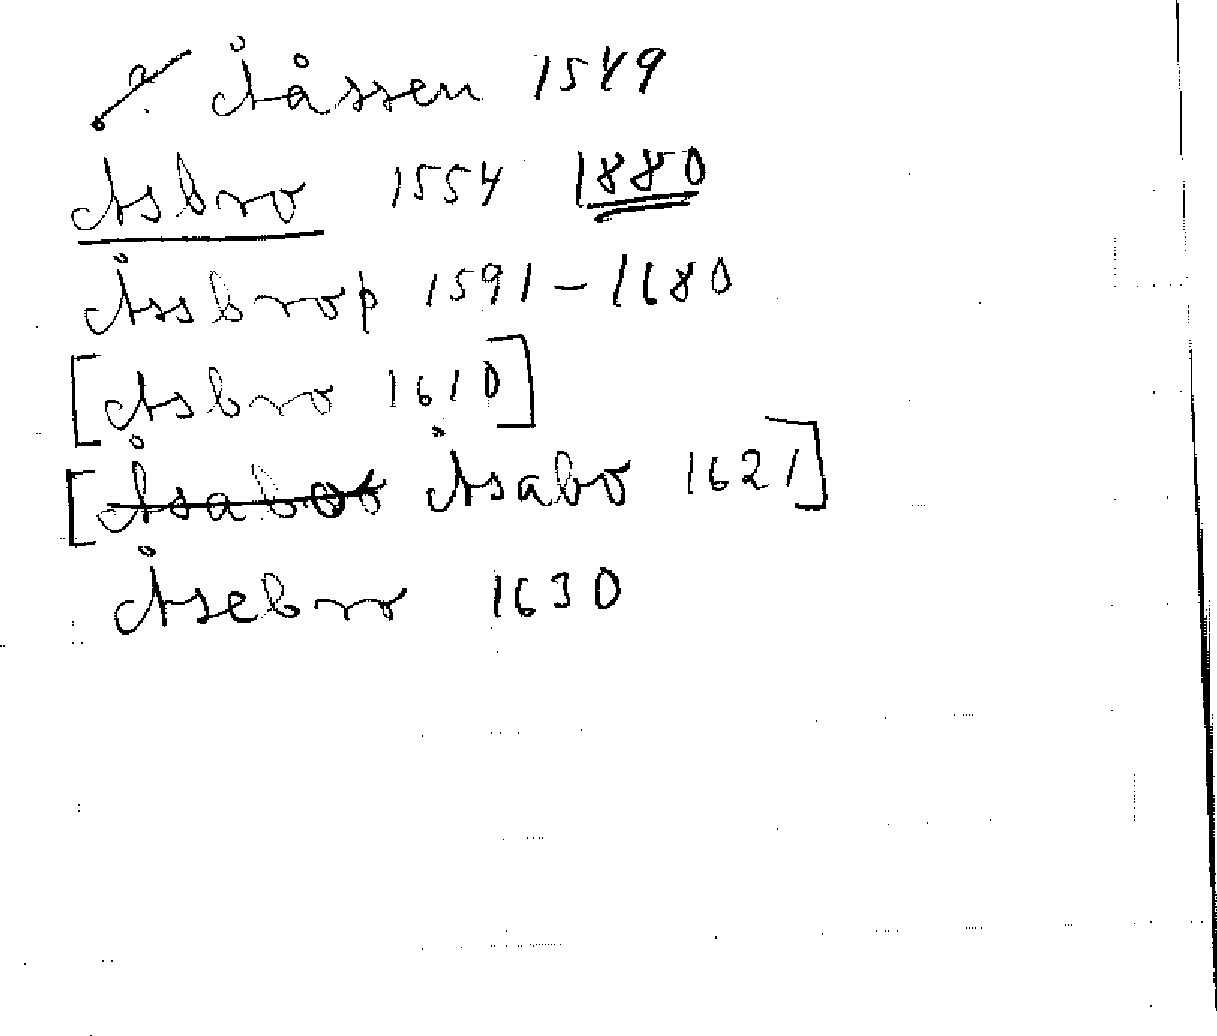 ? Ååssen 1549
Asbro 1554 1880
Åssbrop 1591-1680
[Asbro 1610]
[Åsabor Åsabo 1621]
Åsebro 1630